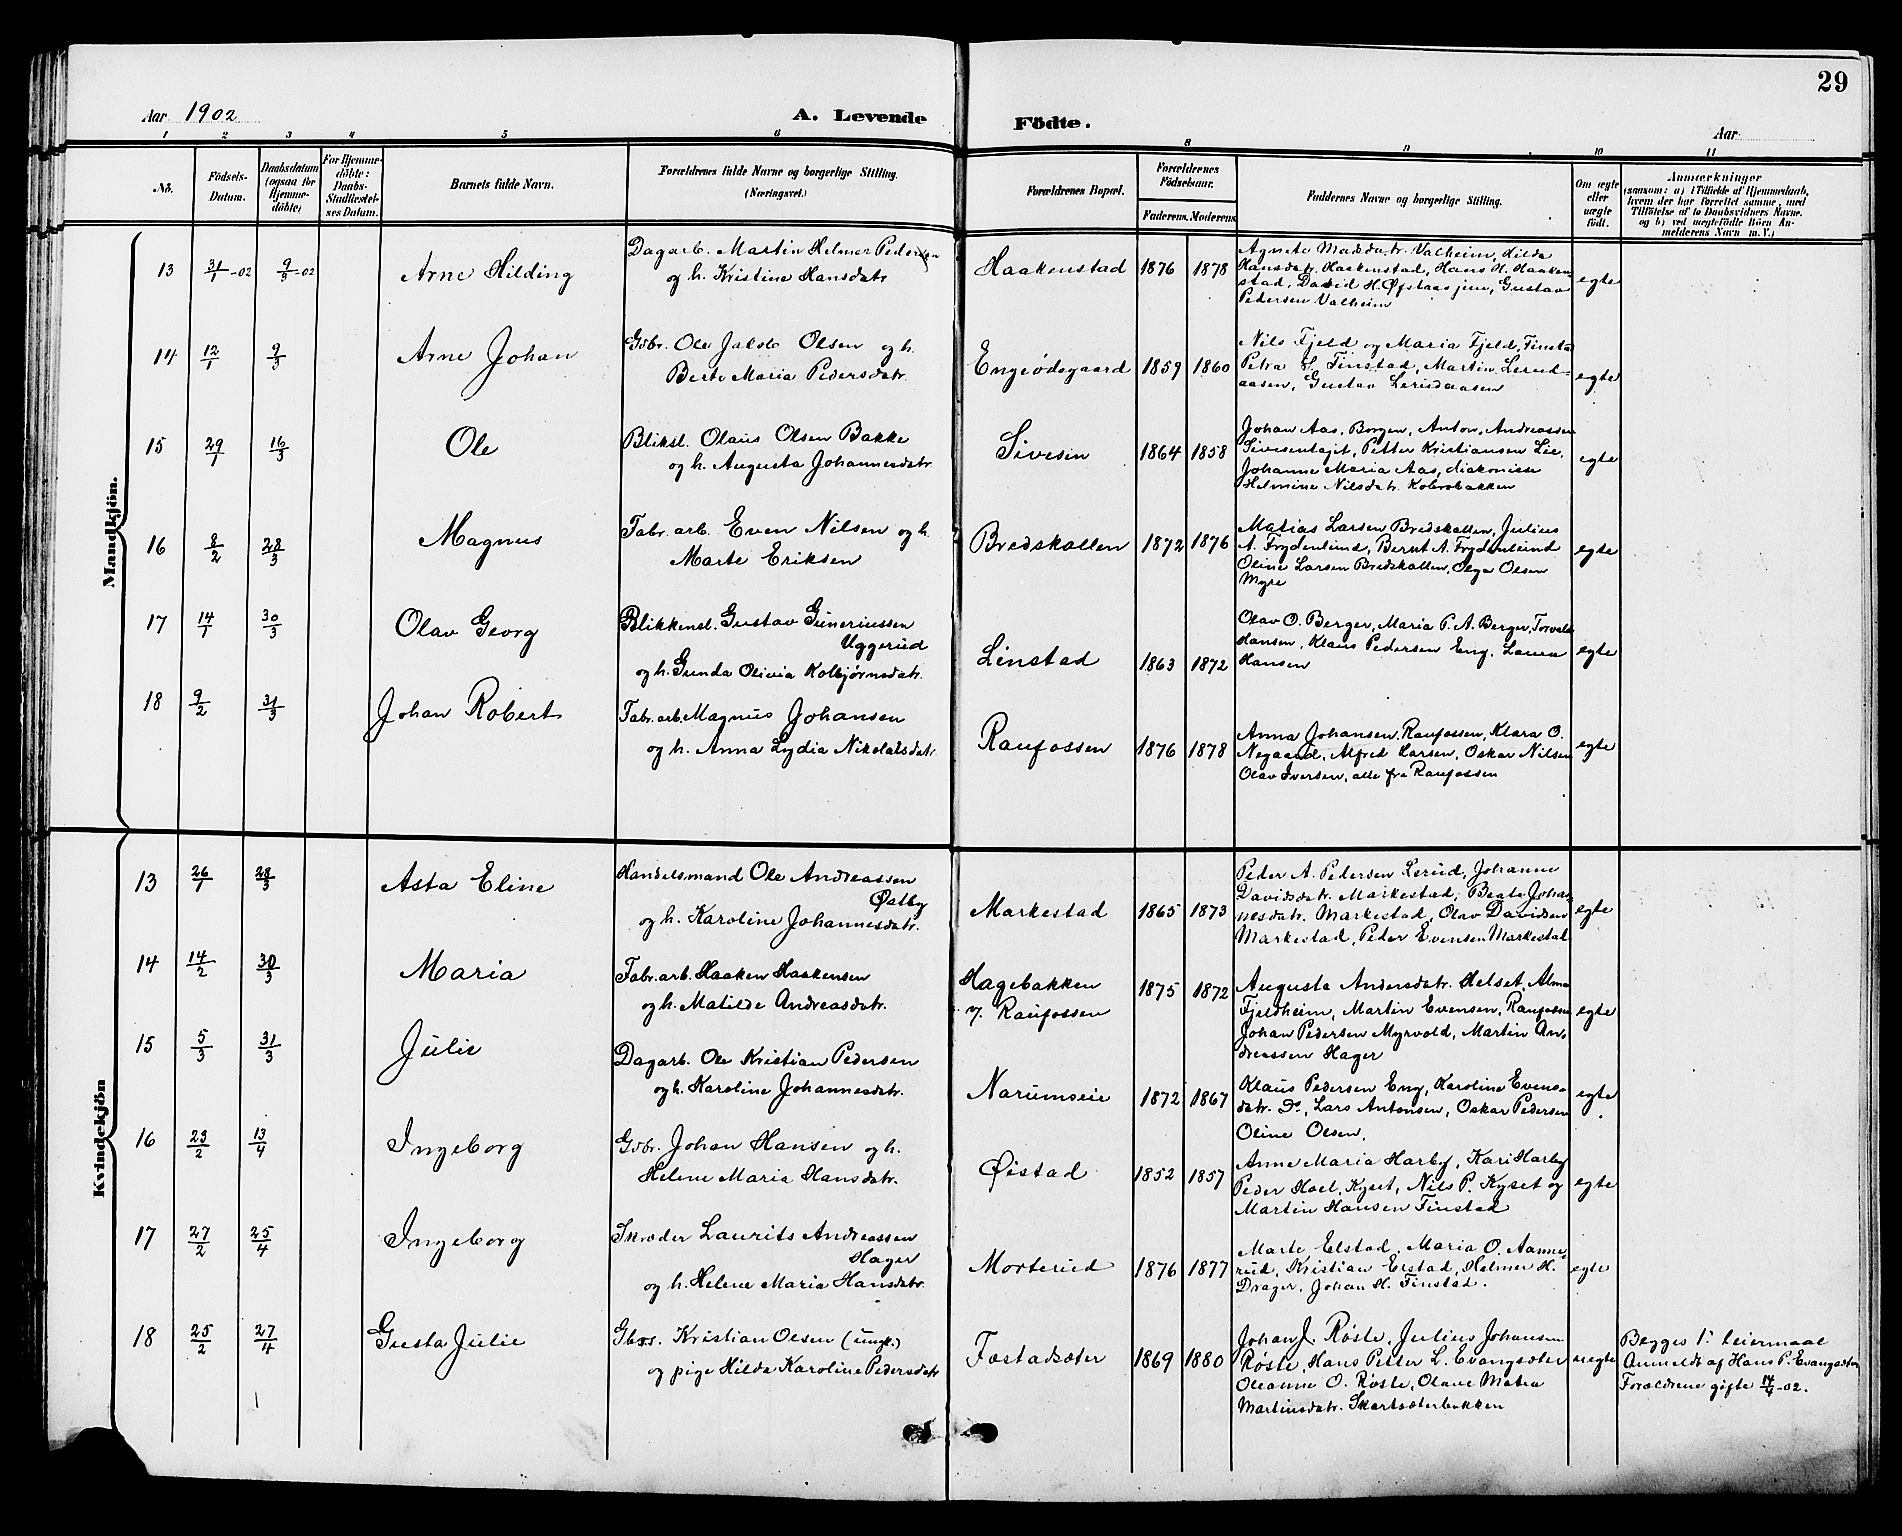 29
Aar 1902
A. Levende Födte.
Aar
1 2 3 4 5 6 8 9 10 11
No.
Födsels-Datum.
Daabsdatum (ogsaa for Hjemme-döbte)
For Hjemme-döbte: Daabs-Stadfæstel-ses Datum.
Barnets fulde Navn.
Forældrenes fulde Navne og borgerlige Stilling. (Næringsvei.)
Forældrenes Bopæl.
Forældrenes Födselsaar.
Faderens. Moderens.
Faddernes Navne og borgerlige Stilling.
Om ægte eller uægte födt.
Anmærkninger
(saasom: a) i Tilfælde af Hjemmedaab,
hvem der har forrettet samme, med
Tilföielse af to Daabsvidners Navne.
og b) ved uægtefödte Börn An-
melderens Navn m. V.)
Mandkjön.
13 31/1-02 9/3-02 Arne Hilding
Dagarb. Martin Helmer Pedersen
og h. Kristine Hansdatr
Haakenstad 1876 1878
Agnete Madsdatr. Valheim, Hilda
Hansdatr. Haakenstad, Hans H. Haaken-
stad, David H. Øfstaasjen, Gustav
Pedersen Valheim
egte
14 12/1 9/3 Arne Johan
Gbr. Ole Jakob Olsen og h.
Berte Maria Pedersdatr.
Engeødegaard 1859 1860
Nils Fjeld og Maria Fjeld, Finsta
Petra Finstad, Martin Lerud-
aasen, Gustav Lerudaasen
egte
15 29/1 16/3 Ole
Bliksl. Olaus Olsen Bakke
og h. Augusta Johannesdatr
Sivesin 1864 1858
Johan Aas, Borgen, Anton Andreassen
Sivesentajet, Petter Kristiansen Lie,
Johanne Maria Aas, diakonisse
Helmine Nilsdatr. Kolsrobakken
egte
16 8/2 28/3 Magnus
Fabr. arb. Even Nilsen og h.
Marte Eriksen
Bredskallen 1872 1876
Matias Larsen Bredskallen, Julius
A. Frydenlund, Bernt A. Frydenlund
Oline Larsen Bredskallen, Olga Olsen
Myre
egte
17 14/1 30/3 Olav Georg
Blikkensl. Gustav Guneriussen
Uggerud
og h. Gunda Olivia Kolbjørnsdatr.
Linstad 1863 1872
Olav O. Berger, Maria P. A. Berger, Torvald
Hansen, Klaus Pedersen Eng, Laura
Hansen
egte
18 9/2 31/3 Johan Robert
Fabr. arb. Magnus Johansen
og h. Anna Lydia Nikolaisdatr.
Raufossen 1876 1878
Anna Johansen, Raufossen, Klara O.
Nygaard, Alfred Larsen, Oskar Nilsen
Olav Iversen, alle fra Raufossen
egte
Kvindekjön
13 26/1 28/3 Asta Eline
Handelsmand Ole Andreassen
Østby
og h. Karoline Johannesdatr.
Markestad 1865 1873
Peder A. Pedersen Lerud, Johanne
Davidsdatr. Markestad, Beate Johan-
nesdatr. Markestad, Olav Davidsen
Markestad, Peder Evensen Markestad
egte
14 14/2 30/3 Maria
Fabr. arb. Haaken Haakensen
og h. Matilde Andreasdatr.
Hagebakken
v. Raufossen 1875 1872
Augusta Andersdatr. Helset, Alma
Fjeldheim, Martin Evensen, Raufossen
Johan Pedersen Myrvold, Martin An-
dreassen Hager
egte
15 5/3 31/3 Julie
Dagarb. Ole Kristian Pedersen
og h. Karoline Johannesdatr.
Narumseie 1872 1867
Klaus Pedersen Eng, Karoline Evens-
datr. Do., Lars Antonsen, Oskar Pedersen
Oline Olsen.
egte
16 23/2 13/4 Ingeborg
Gbr. Johan Hansen og h.
Helene Maria Hansdatr.
Øistad 1852 1857
Anne Maria Harby, Kari Harby
Peder Hoel, Kyset, Nils P. Kyset og
Martin Hansen Finstad
egte
17 27/2 25/4 Ingeborg
Skræder Laurits Andreassen
Hager
og h. Helene Maria Hansdatr.
Morterud 1876 1877
Marte Elstad, Maria O. Aanne-
rud, Kristian Elstad, Helmer H.
Drager, Johan H. Finstad.
egte
18 25/2 27/4 Gusta Julie
Gbrs. Kristian Olsen (ungk.)
og pige Hilda Karoline Pedersdatr
Fæstadsæter 1869 1880
Johan J. Røste, Julius Johansen
Røste, Hans Petter L. Evangsæter
Oleanne O. Røste, Olave Matea
Martinsdatr. Skartsæterbakken
uegte
Begges 1ste leiermaal
Anmeldt af Hans P. Evangsæter
Forældrene gifte 14/4-02.